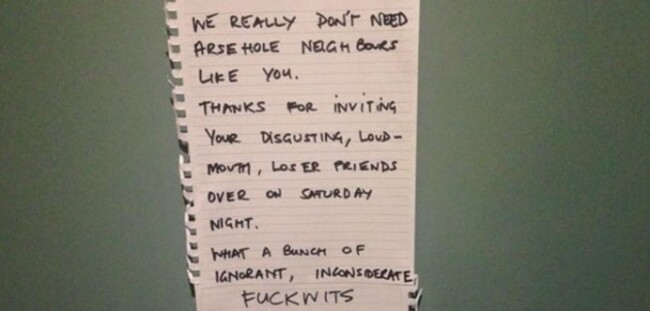 WE REALLY DON'T NEED
ARSEHOLE NEIGHBOURS
LIKE YOU.
THANKS FOR INVITING
YOUR DISGUSTING, LOUD-
MOUTH, LOSER FRIENDS
OVER ON SATURDAY
NIGHT.
WHAT A BUNCH OF
IGNORANT, INCONSIDERATE,
FUCKWITS